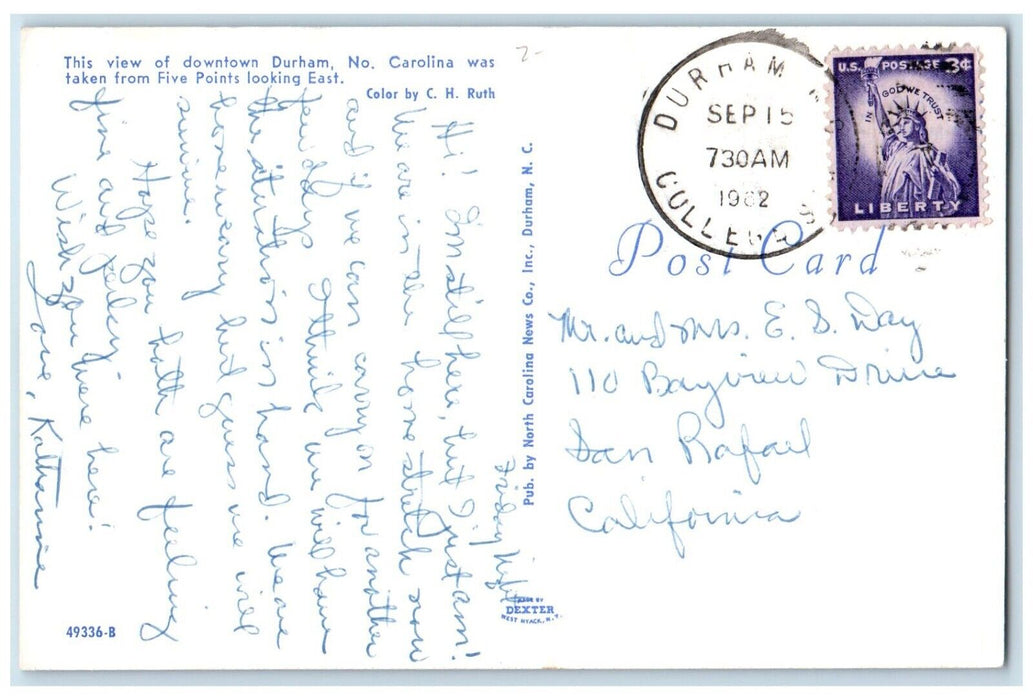 This view of downtown Durham, No. Carolina was
taken from Five Points looking East.
Color by C. H. Ruth
Friday Night
Hi! I'm still here, but I just am!
We are in the home stretch now
and if we can carry on for another
few days I think we will have
the situation in hand. We are
tone weary but guess we will
survive.
Hope you both are feeling
fine and
Wish you were here!
Love, Katharine
49336-B
Pub. by North Carolina News Co., Inc., Durham, N. C.
MADE BY
DEXTER
WEST NYACK, N. Y.
DURHAM
SEP 15
730 AM
1962
U.S. POSTAGE 3¢
IN GOD WE TRUST
LIBERTY
Post Card
Mr. and Mrs. E. S. Day
110 Bayview Drive
San Rafael
California